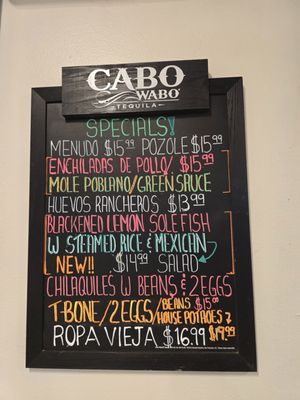 CABO
WABO
TEQUILA
SPECIALS!
MENUDO $15.99 POZOLE $15.99
ENCHILADAS DE POLLO/ $15.99
MOLE POBLANO/GREEN SAUCE
HUEVOS RANCHEROS $13.99
BLACKENED LEMON SOLE FISH
W STEAMED RICE & MEXICAN
NEW!! $14.99 SALAD
CHILAQUILES W BEANS & 2 EGGS
T-BONE/2 EGGS/BEANS $15.00
HOUSE POTATOES
ROPA VIEJA $16.99 $19.99